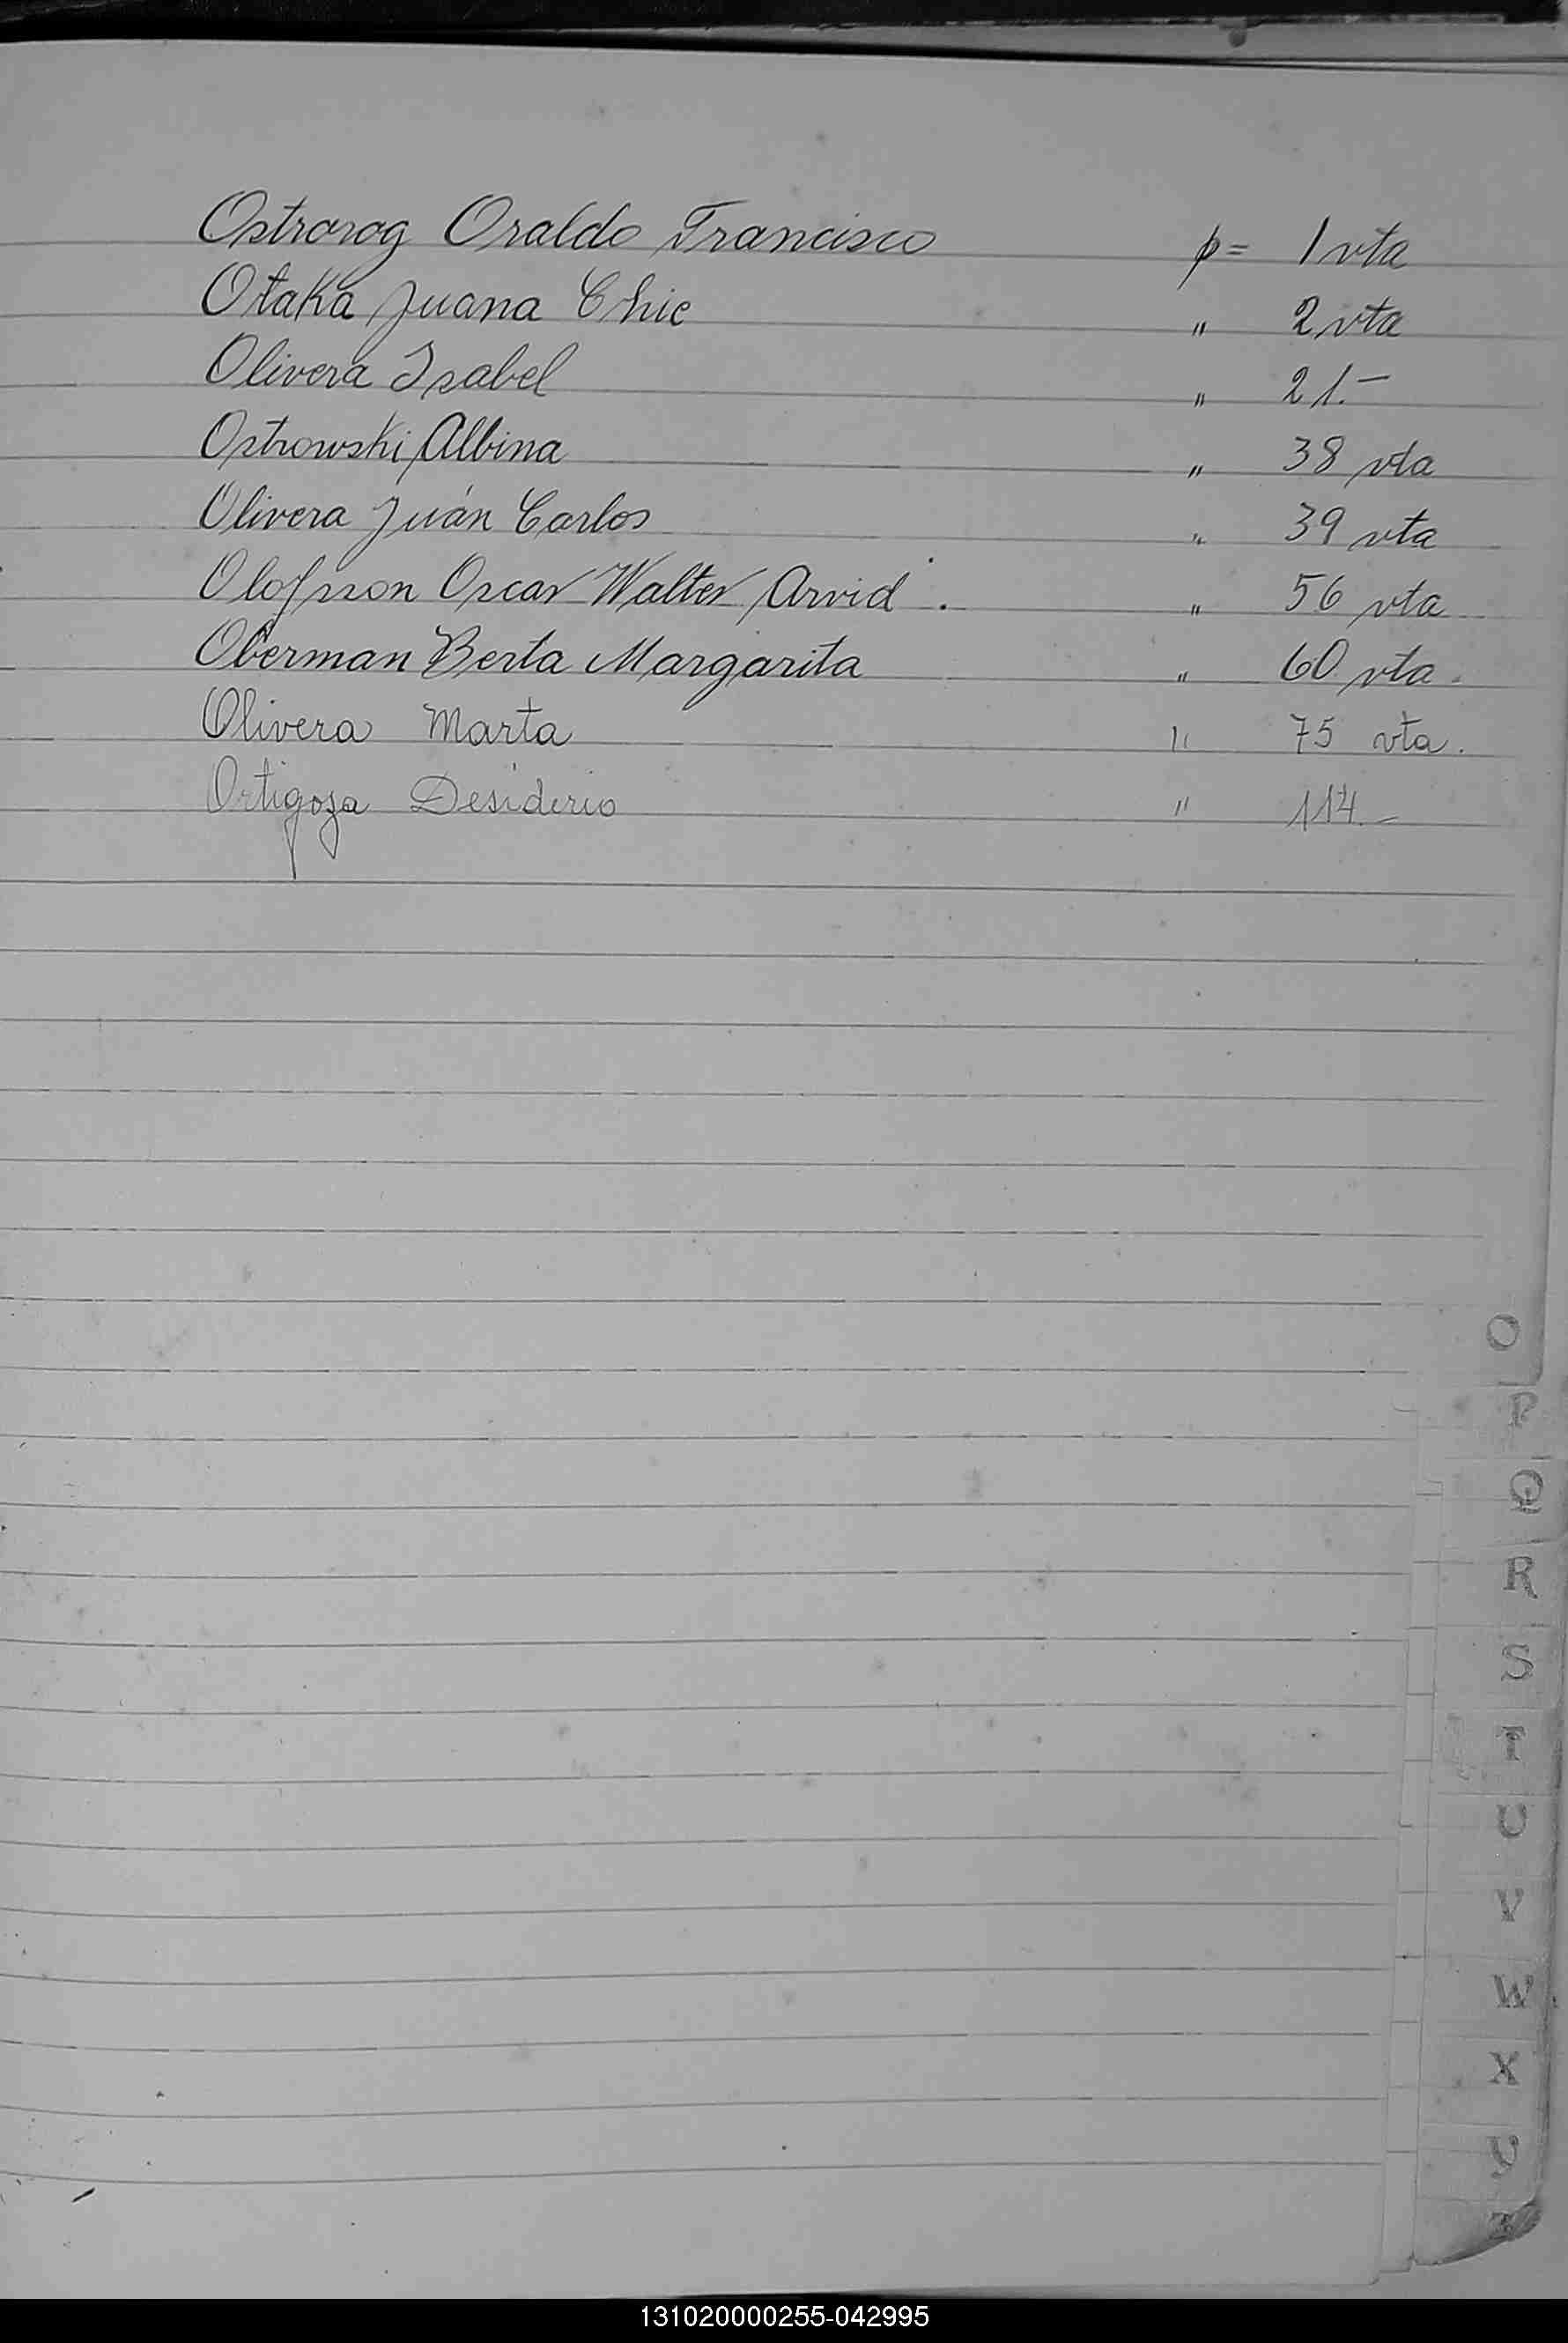 Ostrorog Oraldo Francisco p= 1 vta
Otaka Juana Chie " 2 vta
Olivera Isabel " 21.-
Ostrowski Albina " 38 vta
Olivera Juán Carlos " 39 vta
Olofsson Oscar Walter Arvid . " 56 vta
Oberman Berta Margarita " 60 vta.
Olivera Marta " 75 vta.
Ortigoza Desiderio " 114.-
O
P
Q
R
S
T
U
V
W
X
Y
Z
131020000255-042995